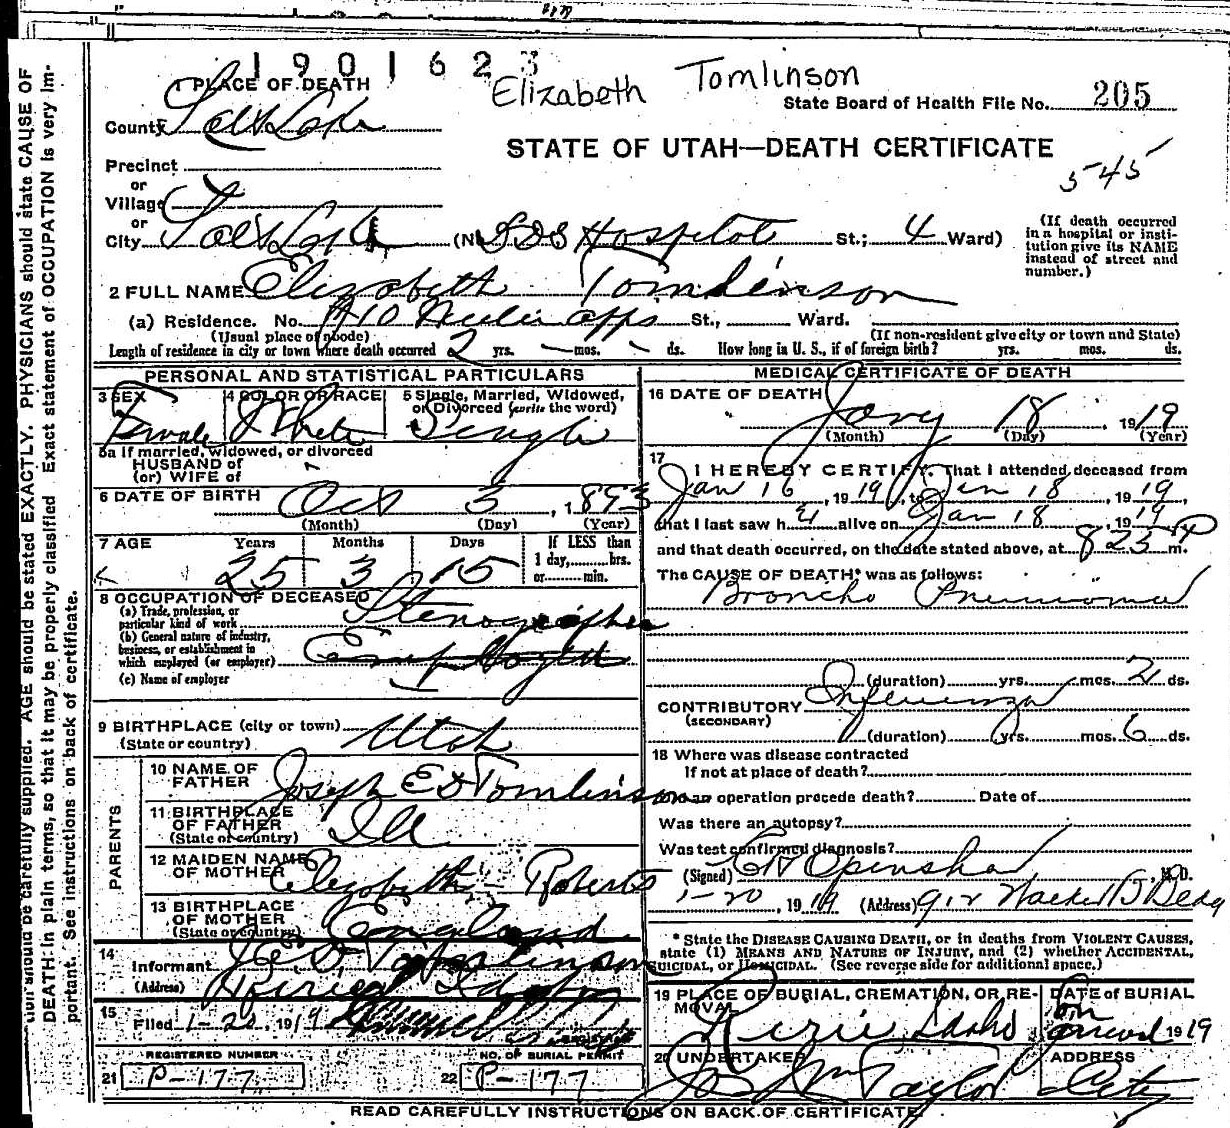 1901623
Elizabeth Tomlinson
1 PLACE OF DEATH
State Board of Health File No. 205
County Salt Lake
STATE OF UTAH—DEATH CERTIFICATE
545
Precinct
or
Village
or
City Salt Lake (No. LDS Hospital St.; 4 Ward)
(If death occurred in a hospital or insti-
tution give its NAME
instead of street and
number.)
2 FULL NAME Elizabeth Tomlinson
(a) Residence. No. #10 Apps St., Ward.
(Usual place of abode) (If non-resident give city or town and State)
Length of residence in city or town where death occurred 2 yrs. — mos. - ds. How long in U. S., if of foreign birth? yrs. mos. ds.
PERSONAL AND STATISTICAL PARTICULARS
3 SEX Female
4 COLOR OR RACE White
5 Single, Married, Widowed, or Divorced (write the word) Single
5a If married, widowed, or divorced
HUSBAND of
(or) WIFE of
6 DATE OF BIRTH Oct 3, 1893
(Month) (Day) (Year)
7 AGE Years Months Days If LESS than
1 day,......hrs.
or......min.
25 3 15
8 OCCUPATION OF DECEASED
(a) Trade, profession, or
particular kind of work Stenographer
(b) General nature of industry,
business, or establishment in
which employed (or employer)
(c) Name of employer
9 BIRTHPLACE (city or town)
(State or country) Utah
PARENTS
10 NAME OF
FATHER Joseph E D Tomlinson
11 BIRTHPLACE
OF FATHER
(State or country) Ill
12 MAIDEN NAME
OF MOTHER Elizabeth Roberts
13 BIRTHPLACE
OF MOTHER
(State or country) England
14 Informant J. E. D. Tomlinson
(Address) Idaho
15 Filed 1-20, 1919
REGISTRAR
REGISTERED NUMBER NO. OF BURIAL PERMIT
21 P-177 22 P-177
MEDICAL CERTIFICATE OF DEATH
16 DATE OF DEATH
Jany 18 1919
(Month) (Day) (Year)
17 I HEREBY CERTIFY, That I attended deceased from
Jan 16, 1919, to Jan 18, 1919,
that I last saw her alive on Jan 18, 1919
and that death occurred, on the date stated above, at 8 25 P m.
The CAUSE OF DEATH* was as follows:
Broncho Pneumonia
(duration) yrs. mos. 2 ds.
CONTRIBUTORY Influenza
(SECONDARY)
(duration) yrs. mos. 6 ds.
18 Where was disease contracted
If not at place of death?
Did an operation precede death? Date of
Was there an autopsy?
Was test confirmed diagnosis?
(Signed) Openshaw, M. D.
1-20, 1919 (Address) 912 Walker B Bldg
* State the DISEASE CAUSING DEATH, or in deaths from VIOLENT CAUSES,
state (1) MEANS AND NATURE OF INJURY, and (2) whether ACCIDENTAL,
SUICIDAL, or HOMICIDAL. (See reverse side for additional space.)
19 PLACE OF BURIAL, CREMATION, OR RE-
MOVAL
Idaho
DATE of BURIAL
1919
20 UNDERTAKER
Jos Wm Taylor
ADDRESS
City
READ CAREFULLY INSTRUCTIONS ON BACK OF CERTIFICATE.
tion should be carefully supplied. AGE should be stated EXACTLY. PHYSICIANS should state CAUSE OF
DEATH in plain terms, so that it may be properly classified. Exact statement of OCCUPATION is very im-
portant. See instructions on back of certificate.